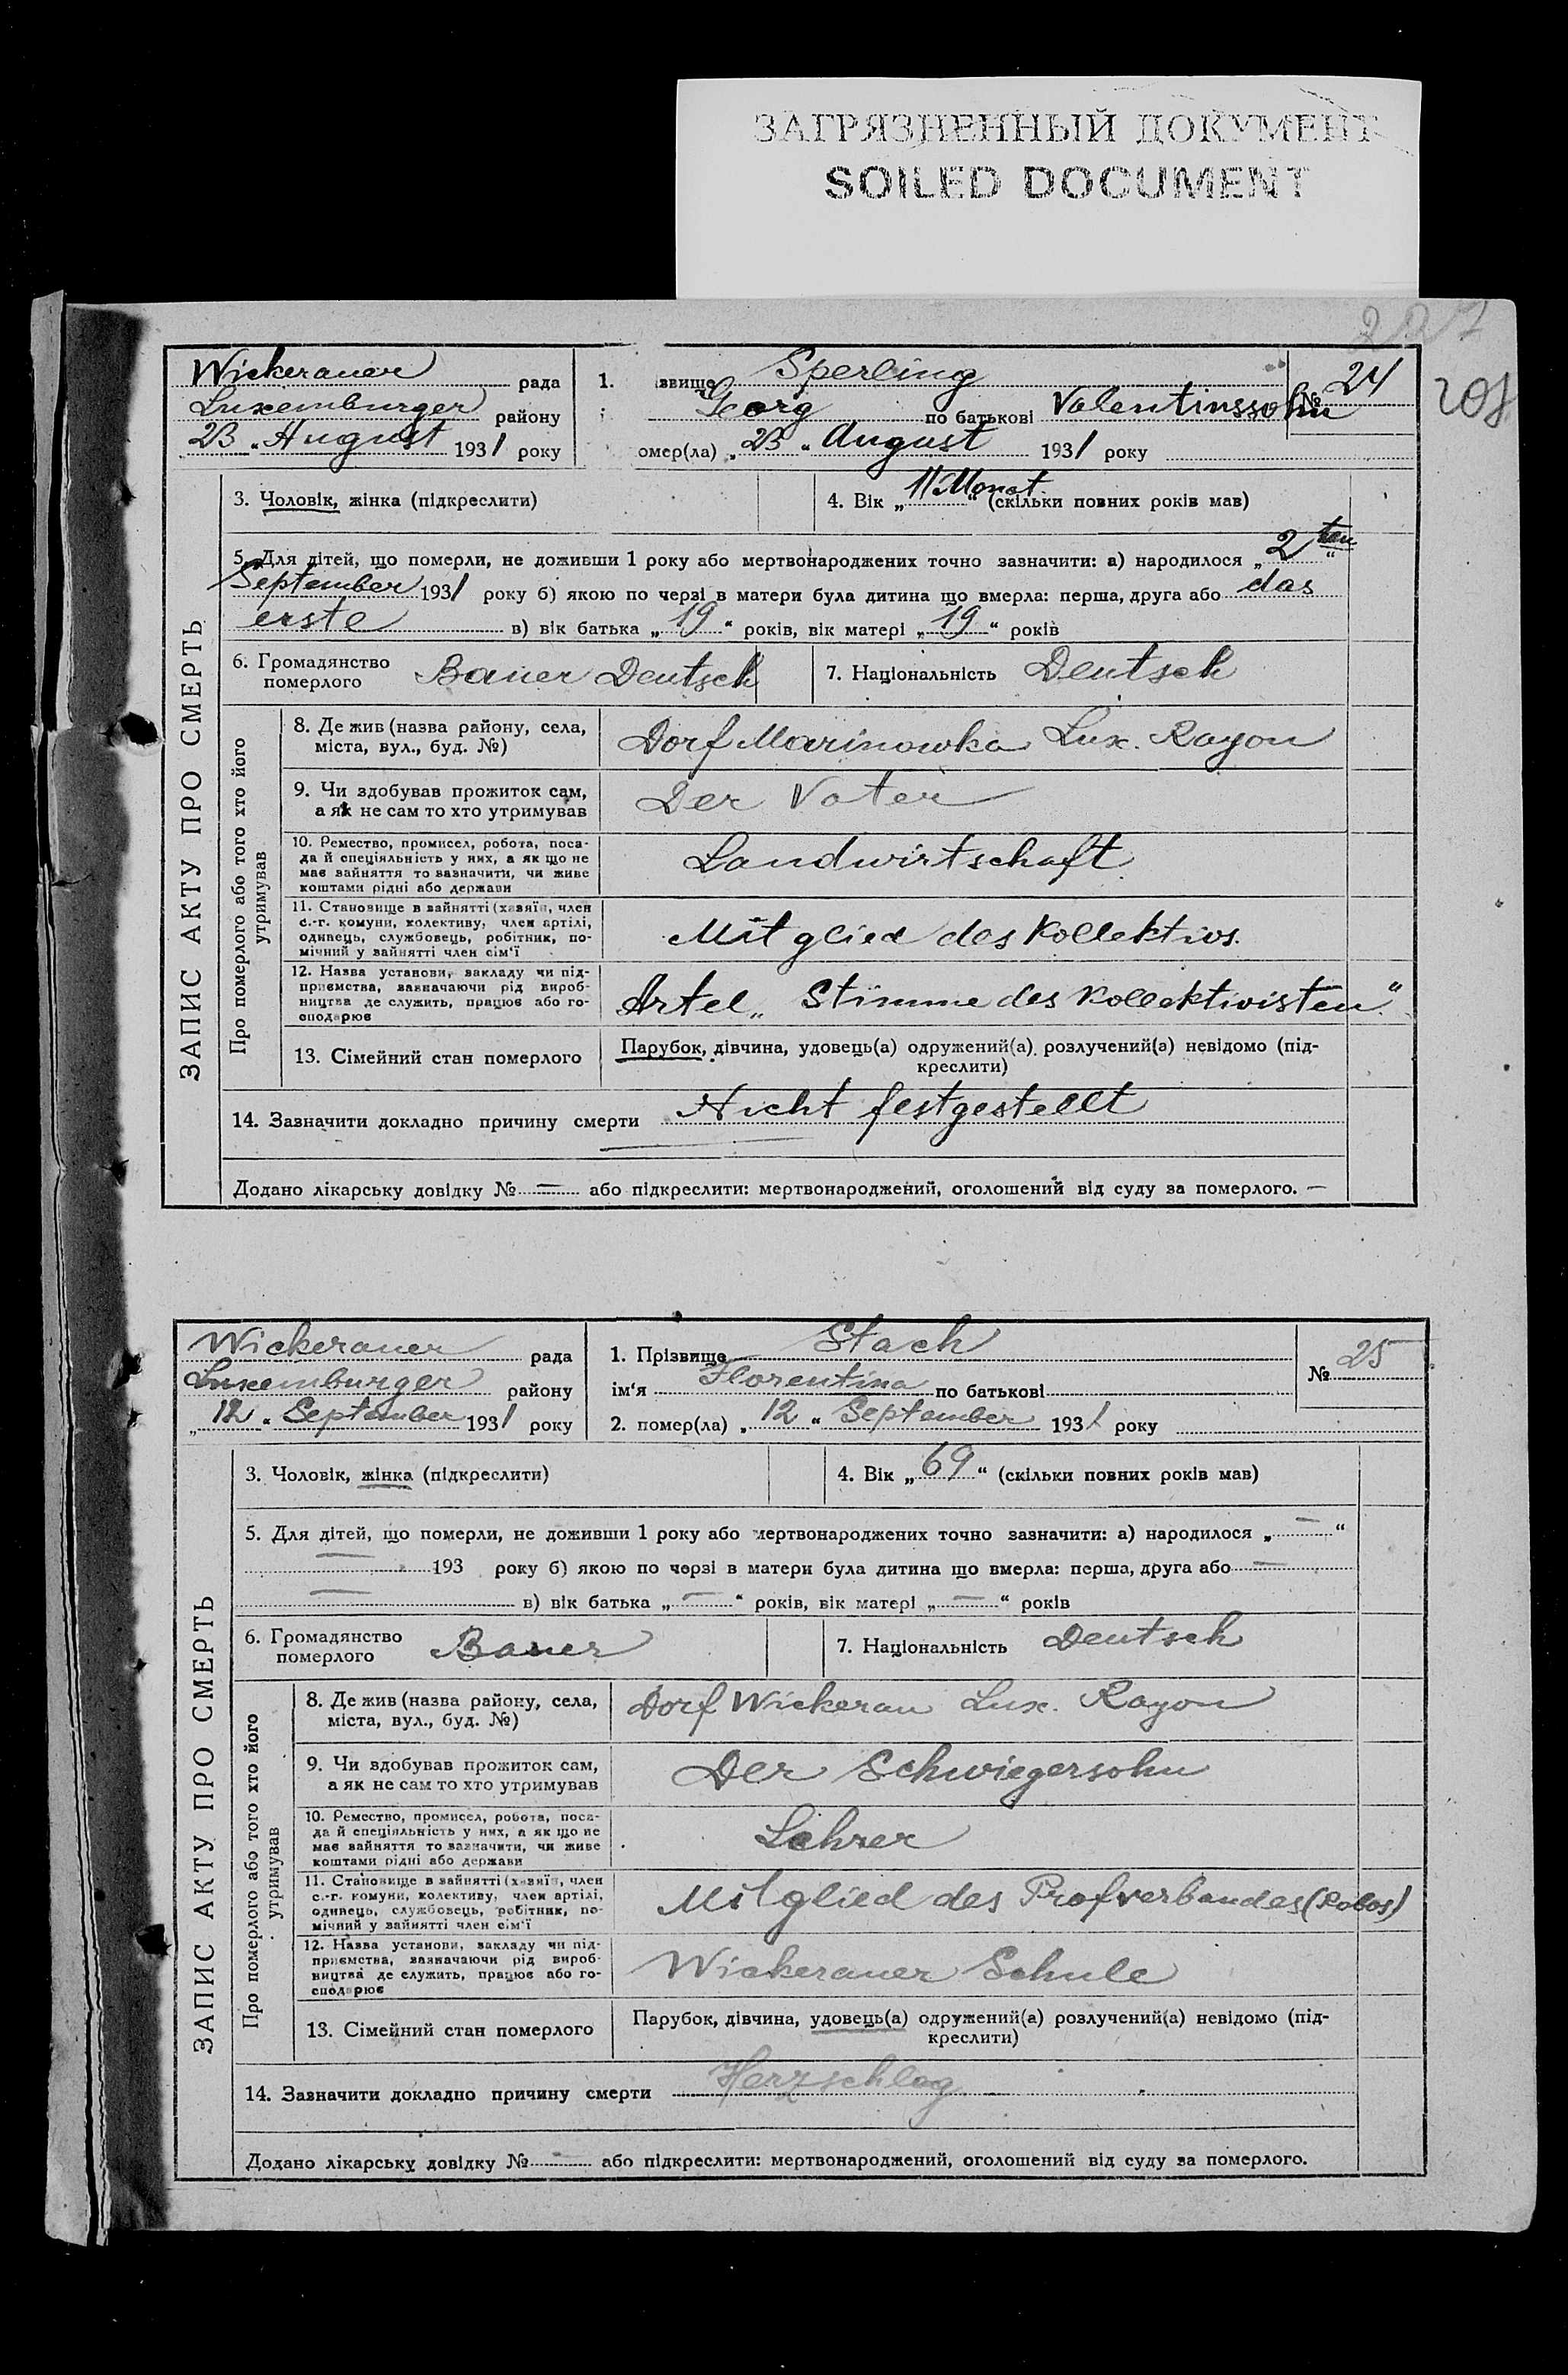 ЗАГРЯЗНЕННЫЙ ДОКУМЕНТ
SOILED DOCUMENT
227
208
Wickerauer рада
Luxemburger району
23 „ August 1931 року
1. звище Sperling
Georg по батькові Valentinssohn
омер(ла) „ 23 “ August 1931 року
№ 24
3. Чоловік, жінка (підкреслити)
4. Вік „ 11 Monat “ (скільки повних років мав)
5. Для дітей, що померли, не доживши 1 року або мертвонароджених точно зазначити: а) народилося „ 2ten “
September 1931 року б) якою по черзі в матери була дитина що вмерла: перша, друга або das
erste в) вік батька „ 19 “ років, вік матері „ 19 “ років
6. Громадянство
померлого Bauer Deutsch
7. Національність Deutsch
ЗАПИС АКТУ ПРО СМЕРТЬ
Про померлого або того хто його
утримував
8. Де жив (назва району, села,
міста, вул., буд. №)
Dorf Marinowka Lux. Rayon
9. Чи здобував прожиток сам,
а як не сам то хто утримував
Der Vater
10. Ремество, промисел, робота, поса-
да й спеціяльність у них, а як що не
має зайняття то зазначити, чи живе
коштами рідні або держави
Landwirtschaft
11. Становище в зайнятті (хазяїн, член
с.-г. комуни, колективу, член артілі,
одинець, службовець, робітник, по-
мічний у зайнятті член сім'ї
Mitglied des Kollektivs.
12. Назва установи, закладу чи під-
приємства, зазначаючи рід вироб-
ництва де служить, працює або го-
сподарює
Artel „Stimme des Kollektivisten“
13. Сімейний стан померлого
Парубок, дівчина, удовець(а) одружений(а) розлучений(а) невідомо (під-
креслити)
14. Зазначити докладно причину смерти Nicht festgestellt
Додано лікарську довідку № — або підкреслити: мертвонароджений, оголошений від суду за померлого. —
Wickerauer рада
Luxemburger району
„ 12 “ September 1931 року
1. Прізвище Stach
ім‘я Florentina по батькові
2. помер(ла) „ 12 “ September 1931 року
№ 25
3. Чоловік, жінка (підкреслити)
4. Вік „ 69 “ (скільки повних років мав)
5. Для дітей, що померли, не доживши 1 року або мертвонароджених точно зазначити: а) народилося „ — “
— 193 року б) якою по черзі в матери була дитина що вмерла: перша, друга або —
— в) вік батька „ — “ років, вік матері „ — “ років
6. Громадянство
померлого Bauer
7. Національність Deutsch
ЗАПИС АКТУ ПРО СМЕРТЬ
Про померлого або того хто його
утримував
8. Де жив (назва району, села,
міста, вул., буд. №)
Dorf Wickerau Lux. Rayon
9. Чи здобував прожиток сам,
а як не сам то хто утримував
Der Schwiegersohn
10. Ремество, промисел, робота, поса-
да й спеціяльність у них, а як що не
має зайняття то зазначити, чи живе
коштами рідні або держави
Lehrer
11. Становище в зайнятті (хазяїн, член
с.-г. комуни, колективу, член артілі,
одинець, службовець, робітник, по-
мічний у зайнятті член сім'ї
Mitglied des Profverbandes (Robos)
12. Назва установи, закладу чи під-
приємства, зазначаючи рід вироб-
ництва де служить, працює або го-
сподарює
Wickerauer Schule
13. Сімейний стан померлого
Парубок, дівчина, удовець(а) одружений(а) розлучений(а) невідомо (під-
креслити)
14. Зазначити докладно причину смерти Herzschlag
Додано лікарську довідку № — або підкреслити: мертвонароджений, оголошений від суду за померлого.